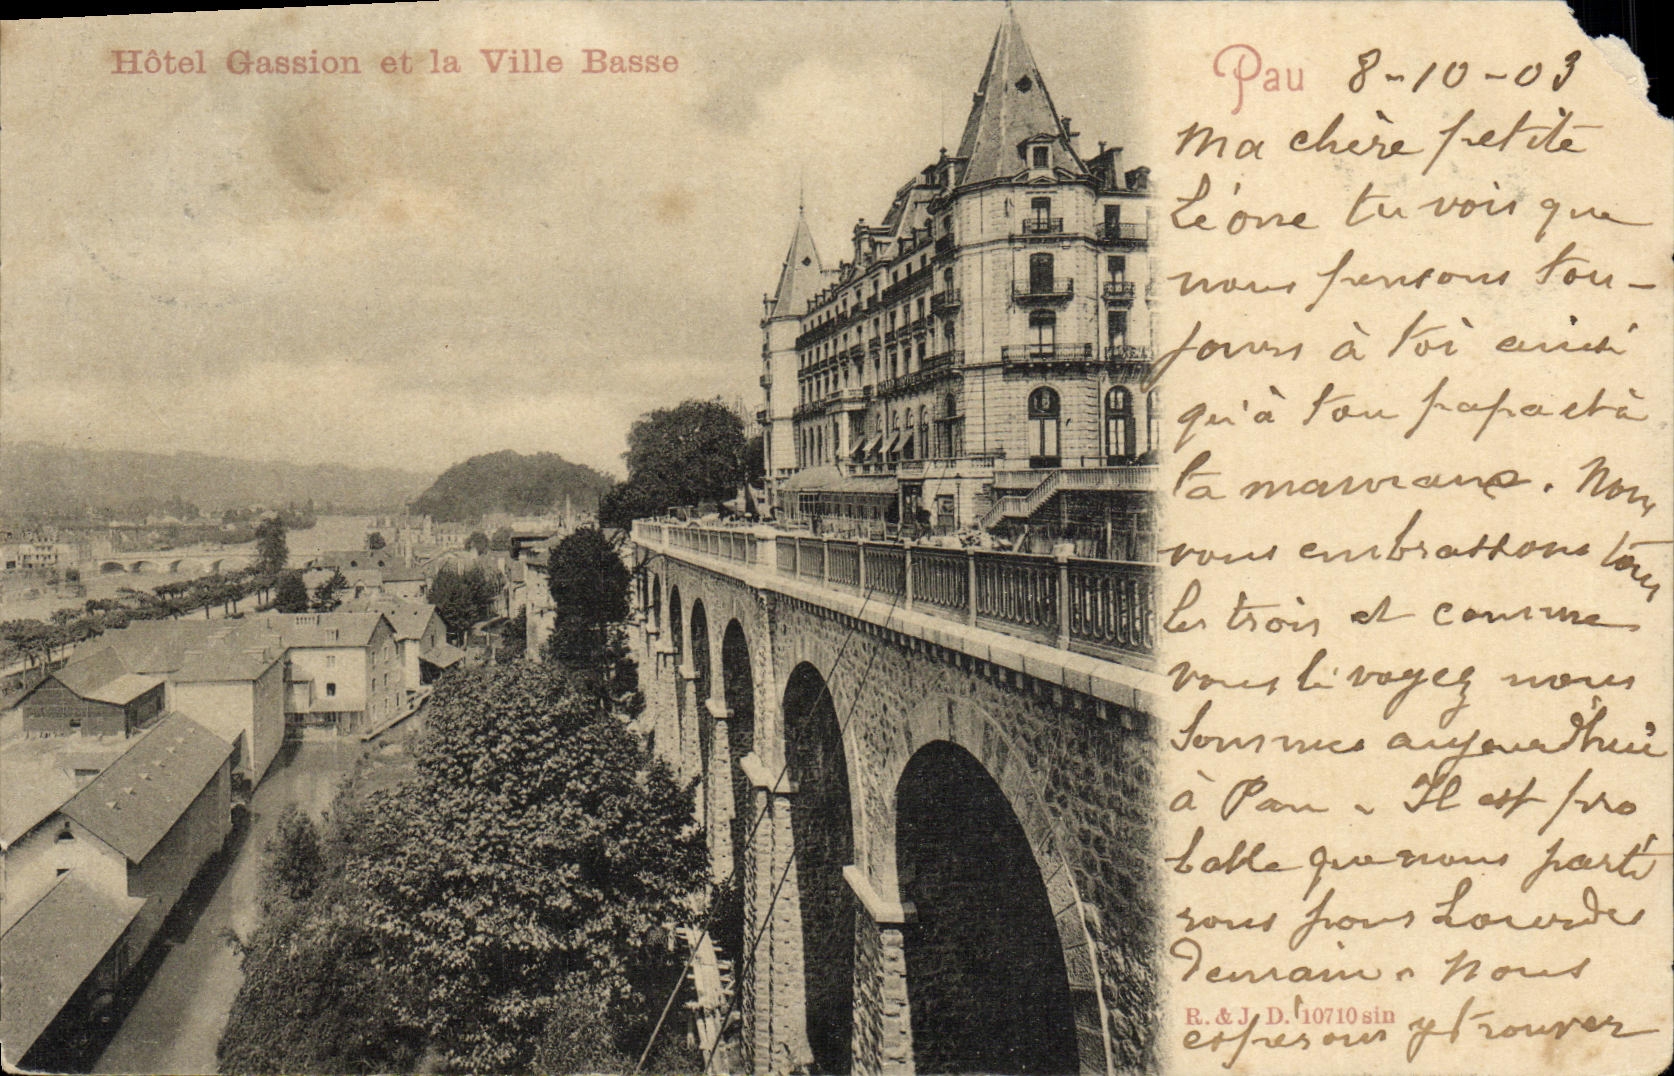 Hôtel Gassion et la Ville Basse
Pau 8-10-03
Ma chère petite
Léone tu vois que
nous pensons tou-
jours à toi ainsi
qu'à ton papa et à
ta maman. Nous
vous embrassons tous
les trois et comme
vous le voyez nous
sommes aujourd'hui
à Pau. Il est pro
bable que nous parti
rons pour Lourdes
demain. Nous
R. & J. D. 10710 sin
espérons y trouver